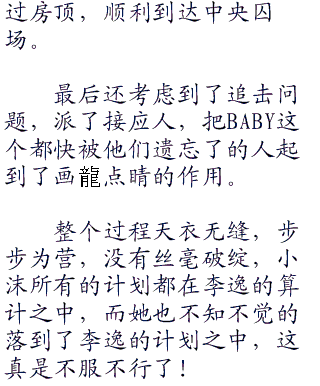 过房顶，顺利到达中央囚
场。
最后还考虑到了追击问
题，派了接应人，把BABY这
个都快被他们遗忘了的人起
到了画龍点晴的作用。
整个过程天衣无缝，步
步为营，没有丝毫破绽，小
沫所有的计划都在李逸的算
计之中，而她也不知不觉的
落到了李逸的计划之中，这
真是不服不行了！